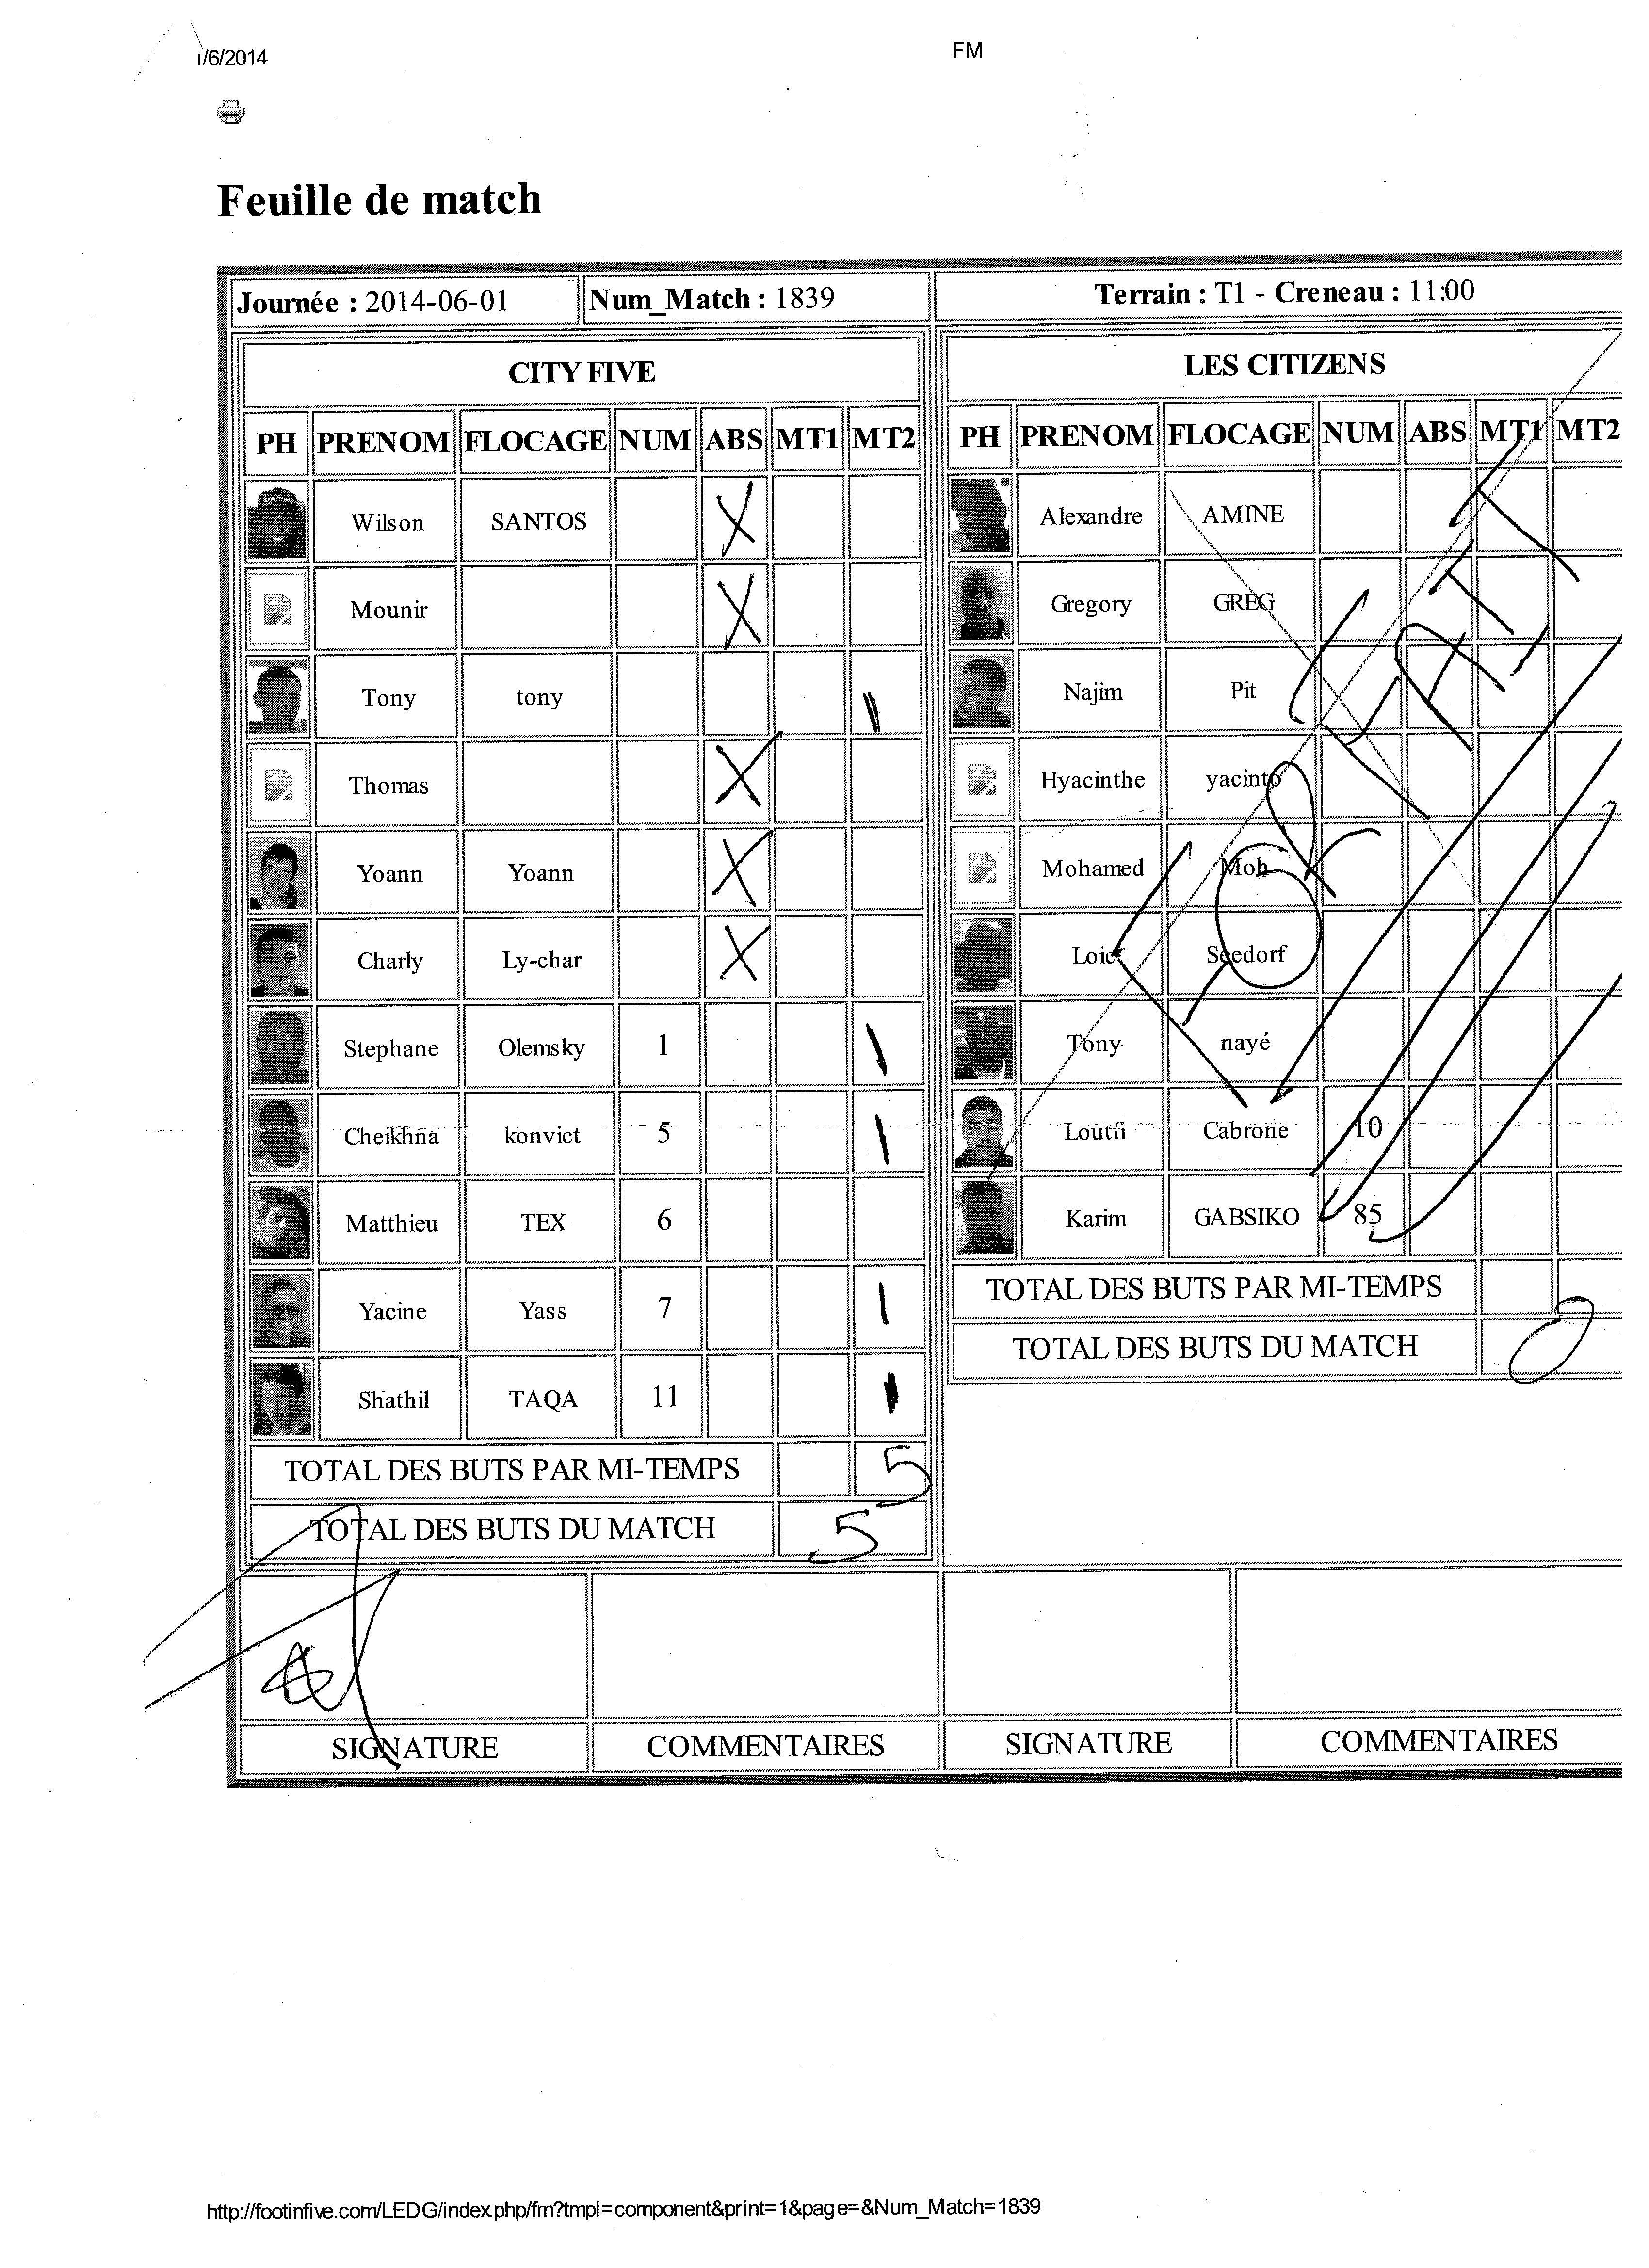 1/6/2014 FM
Feuille de match
Journée : 2014-06-01 Num_Match : 1839 Terrain : T1 - Creneau : 11:00
CITY FIVE
PH PRENOM FLOCAGE NUM ABS MT1 MT2
Wilson SANTOS X
Mounir X
Tony tony
Thomas X
Yoann Yoann X
Charly Ly-char X
Stephane Olemsky 1
Cheikhna konvict 5
Matthieu TEX 6
Yacine Yass 7
Shathil TAQA 11
TOTAL DES BUTS PAR MI-TEMPS 5
TOTAL DES BUTS DU MATCH 5
LES CITIZENS
PH PRENOM FLOCAGE NUM ABS MT1 MT2
Alexandre AMINE
Gregory GREG
Najim Pit
Hyacinthe yacinto
Mohamed Moh
Loic Seedorf
Tony nayé
Loutfi Cabrone 10
Karim GABSIKO 85
FORFAIT
TOTAL DES BUTS PAR MI-TEMPS
TOTAL DES BUTS DU MATCH 0
SIGNATURE COMMENTAIRES SIGNATURE COMMENTAIRES
http://footinfive.com/LEDG/index.php/fm?tmpl=component&print=1&page=&Num_Match=1839